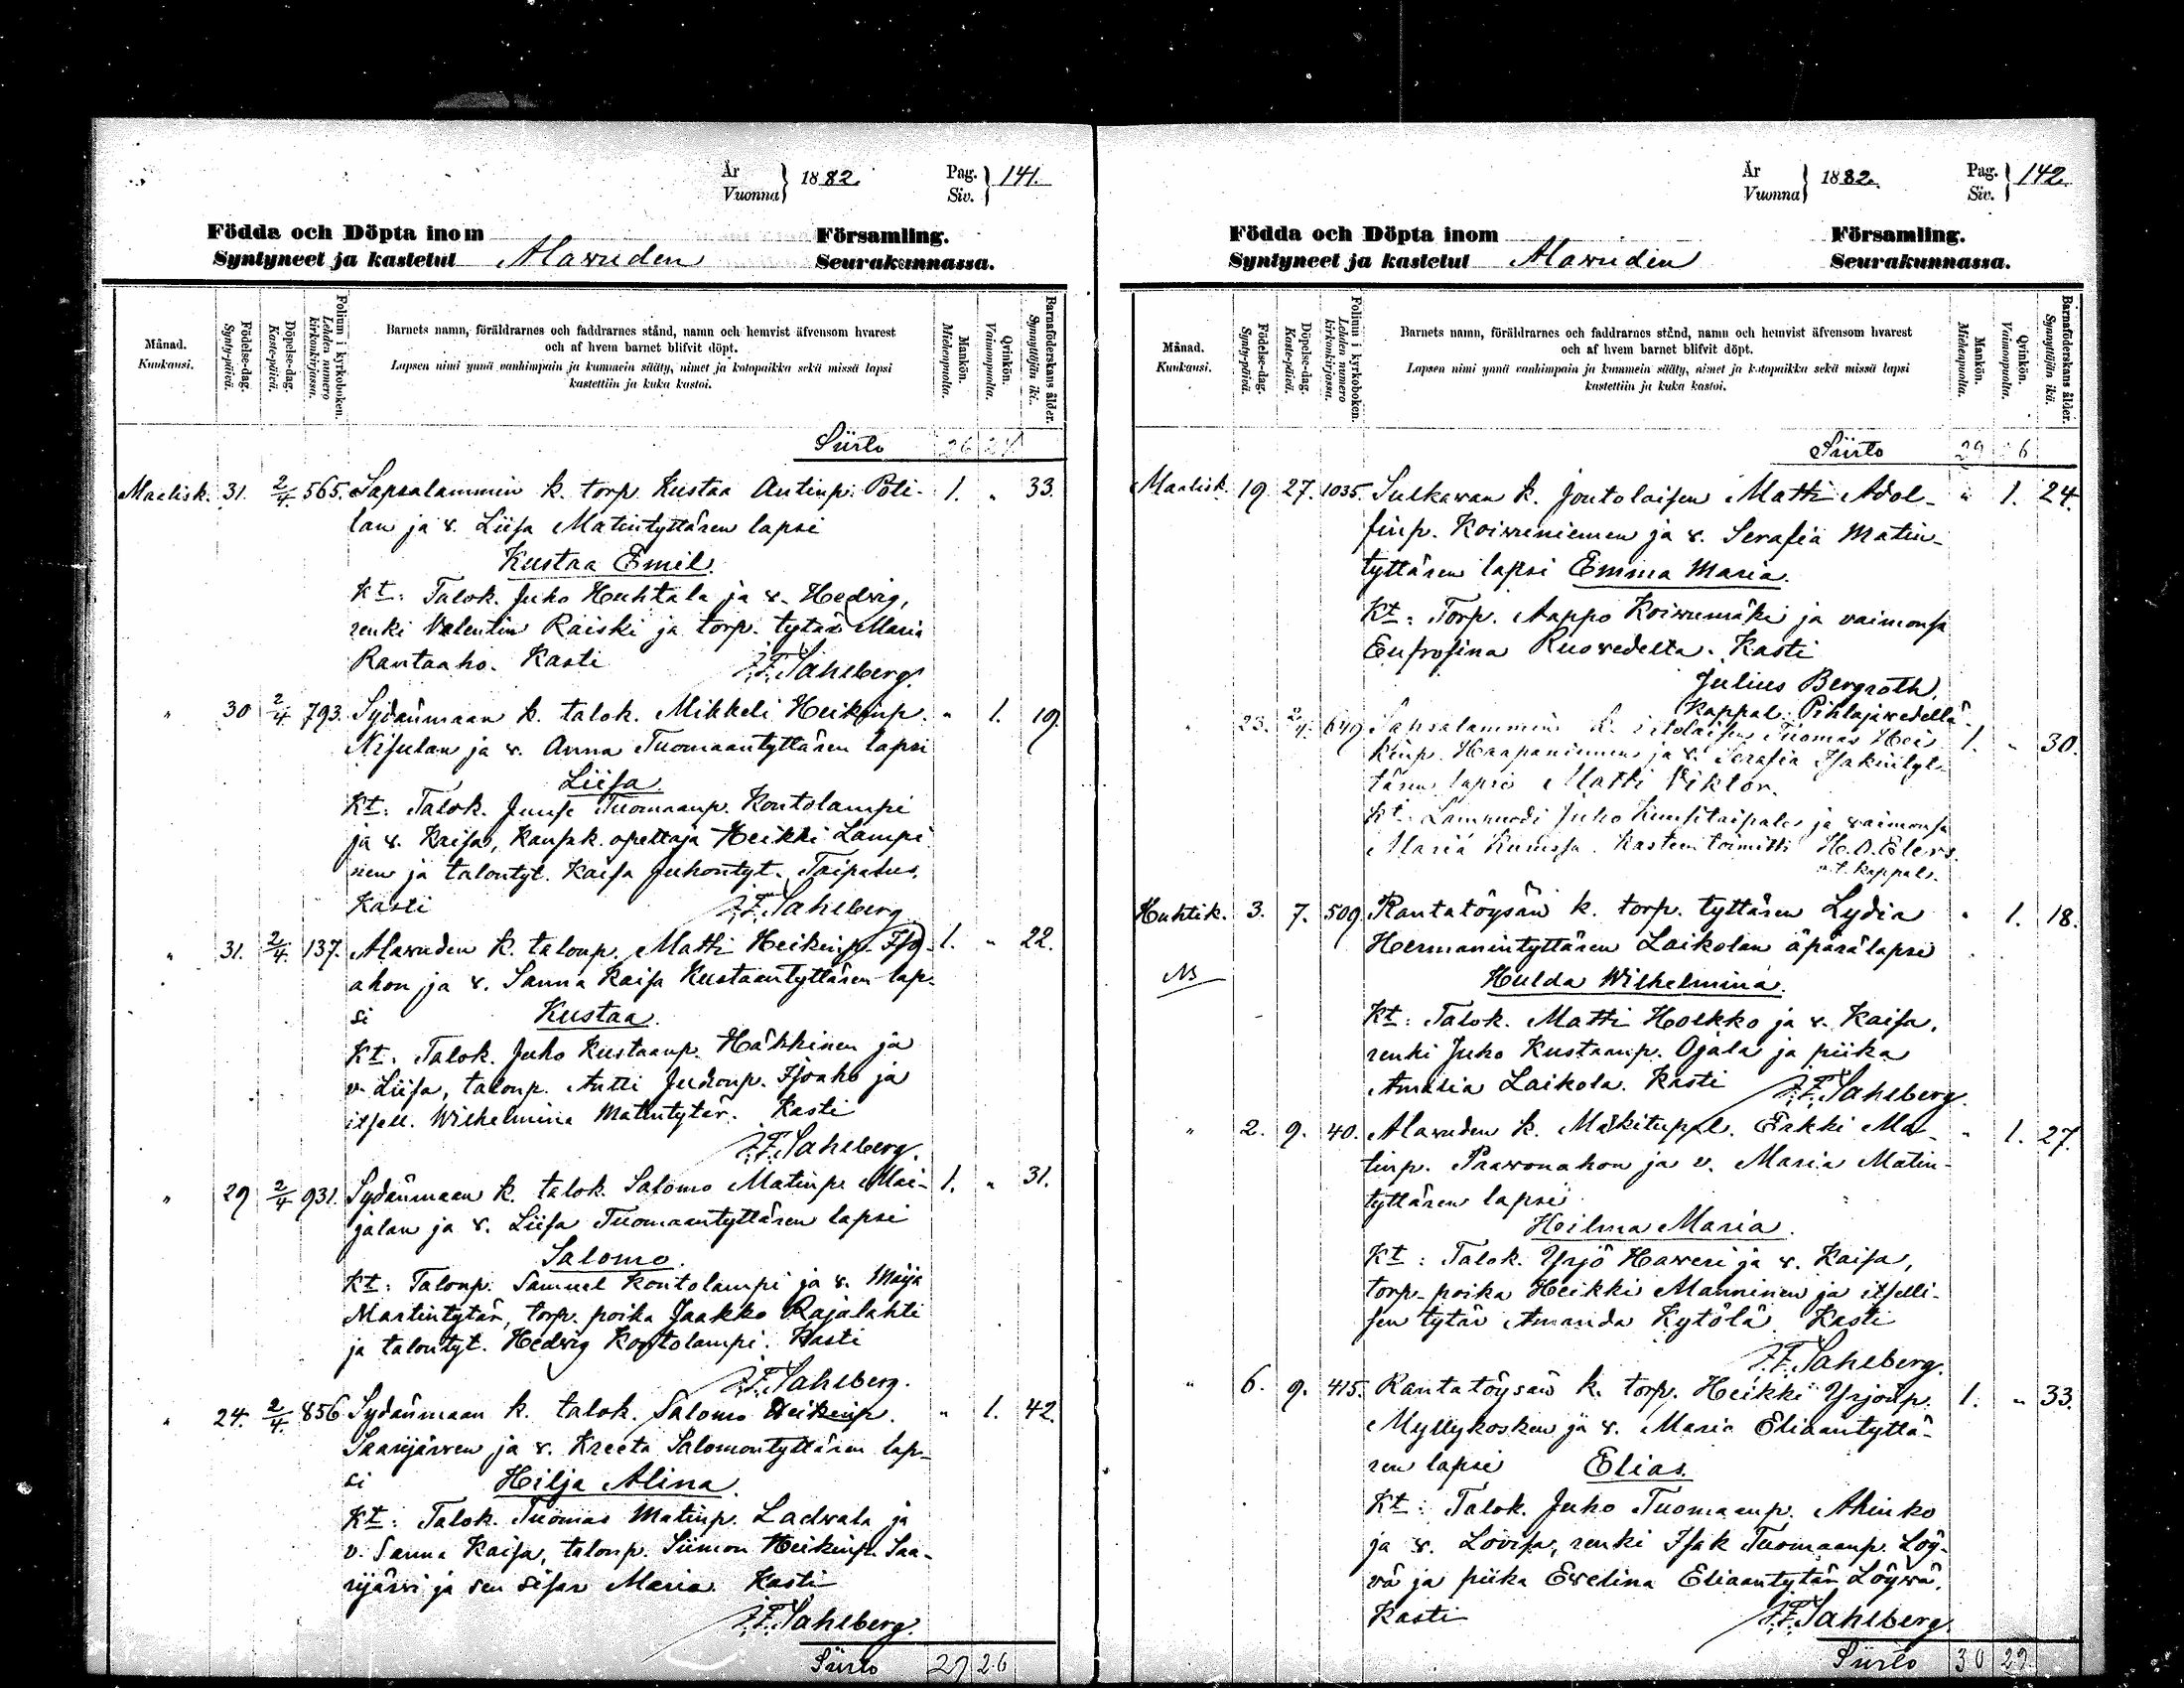 År
Vuonna } 1882. Pag.
Siv. } 141.
Födda och Döpta inom Församling.
Syntyneet ja kastetut Alavuden Seurakunnassa.
Månad.
Kuukausi.
Födelse-dag.
Synty-päivä.
Döpelse-dag.
Kaste-päivä.
Folium i kyrkoboken.
Lehden numero
kirkonkirjassa.
Barnets namn, föräldrarnes och faddrarnes stånd, namn och hemvist äfvensom hvarest
och af hvem barnet blifvit döpt.
Lapsen nimi ynnä vanhimpain ja kummein sääty, nimet ja kotopaikka sekä missä lapsi
kastettiin ja kuka kastoi.
Mankön.
Miehenpuolta.
Qvinkön.
Vaimonpuolta.
Barnaföderskans ålder.
Synnyttäjän ikä.
Siirto 26 24
Maalisk. 31. 2/4 565. Sapsalammin k. torp. Kustaa Antinp. Poti- 1. " 33.
lan ja v. Liisa Matintyttären lapsi
Kustaa Emil.
Kt: Talok. Juho Huhtala ja v. Hedvig,
renki Valentin Raiski ja torp. tytär Maria
Rantaaho. Kasti J.F. Sahlberg.
" 30 2/4 793. Sydänmaan k. talok. Mikkeli Heikinp. " 1. 19.
Nisulan ja v. Anna Tuomaantyttären lapsi
Liisa.
Kt: Talok. Juuse Tuomaanp. Kontolampi
ja v. Kaisa, kansak. opettaja Heikki Lampi
nen ja talontyt. Kaisa Juhontyt. Taipalus.
Kasti J.F. Sahlberg
" 31. 2/4. 137. Alavuden k. talonp. Matti Heikinp. Iso- 1. " 22.
ahon ja v. Sanna Kaisa Kustaantyttären lap-
si Kustaa.
Kt. Talok. Juho Kustaanp. Häkkinen ja
v. Liisa, talonp. Antti Juhonp. Isoaho ja
itsell. Wilhelmina Matintytär. Kasti
J.F. Sahlberg.
" 29 2/4 931. Sydänmaan k. talok. Salomo Matinp. Mai- 1. " 31.
jalan ja v. Liisa Tuomaantyttären lapsi
Salomo.
Kt: Talonp. Samuel Kontolampi ja v. Maija
Martintytär, torp. poika Jaakko Rajalahti
ja talontyt. Hedvig Kontolampi. Kasti
J.F. Sahlberg.
" 24. 2/4. 856 Sydänmaan k. talok. Salomo Heikinp. " 1. 42.
Saarijärven ja v. Kreeta Salomontyttären lap-
si Hilja Alina.
Kt: Talok. Tuomas Matinp. Ladvala ja
v. Sanna Kaisa, talonp. Siimon Heikinp. Saa-
rijärvi ja sen sisar Maria. Kasti
J.F. Sahlberg.
Siirto 29 26
År
Vuonna } 1882. Pag.
Siv. } 142.
Födda och Döpta inom Församling.
Syntyneet ja kastetut Alavuden Seurakunnassa.
Månad.
Kuukausi.
Födelse-dag.
Synty-päivä.
Döpelse-dag.
Kaste-päivä.
Folium i kyrkoboken.
Lehden numero
kirkonkirjassa.
Barnets namn, föräldrarnes och faddrarnes stånd, namn och hemvist äfvensom hvarest
och af hvem barnet blifvit döpt.
Lapsen nimi ynnä vanhimpain ja kummein sääty, nimet ja kotopaikka sekä missä lapsi
kastettiin ja kuka kastoi.
Mankön.
Miehenpuolta.
Qvinkön.
Vaimonpuolta.
Barnaföderskans ålder.
Synnyttäjän ikä.
Siirto 29 26
Maalisk. 19 27. 1035. Sulkavan k. joutolaisen Matti Adol- " 1. 24.
finp. Koivuniemen ja v. Serafia Matin-
tyttären lapsi Emma Maria.
Kt: Torp. Aappo Koivumäki ja vaimonsa
Eufrosina Ruovedeltä. Kasti
Julius Bergroth.
Kappal. Pihlajavedellä.
" 23. 2/4. 649 Sapsalammin k. Tuomas Hei 1. " 30.
kinp. Haapaniemen ja v. Serafia Isakintyt-
tären lapsi Matti Viktor.
Kt. Lampuodi Juho Kuusitaipale ja vaimonsa
Maria Kasteen toimitti H. O. Elers.
v.t. kappal.
Huhtik. 3. 7. 509 Rantatöysän k. torp. tyttären Lydia " 1. 18.
Hermanintyttären Laikolan äpärälapsi
NB Hulda Wilhelmina.
Kt: Talok. Matti Holkko ja v. Kaisa,
renki Juho Kustaanp. Ojala ja piika
Amalia Laikola. Kasti J.F. Sahlberg.
" 2. 9. 40. Alavuden k. Mäkitupal. Erkki Ma- " 1. 27.
tinp. Paavonahon ja v. Maria Matin-
tyttären lapsi
Heilma Maria.
Kt: Talok. Yrjö Haveri ja v. Kaisa,
torp. poika Heikki Manninen ja itselli-
sen tytär Amanda Kytölä. Kasti
J.F. Sahlberg.
" 6. 9. 415. Rantatöysän k. torp. Heikki Yrjönp. 1. " 33.
Myllykosken ja v. Maria Eliaantyttä-
ren lapsi Elias.
Kt: Talok. Juho Tuomaanp. Ahinko
ja v. Lovisa, renki Isak Tuomaanp. Löy-
vä ja piika Evelina Eliaantytär Löyvä.
Kasti J.F. Sahlberg.
Siirto 30 29